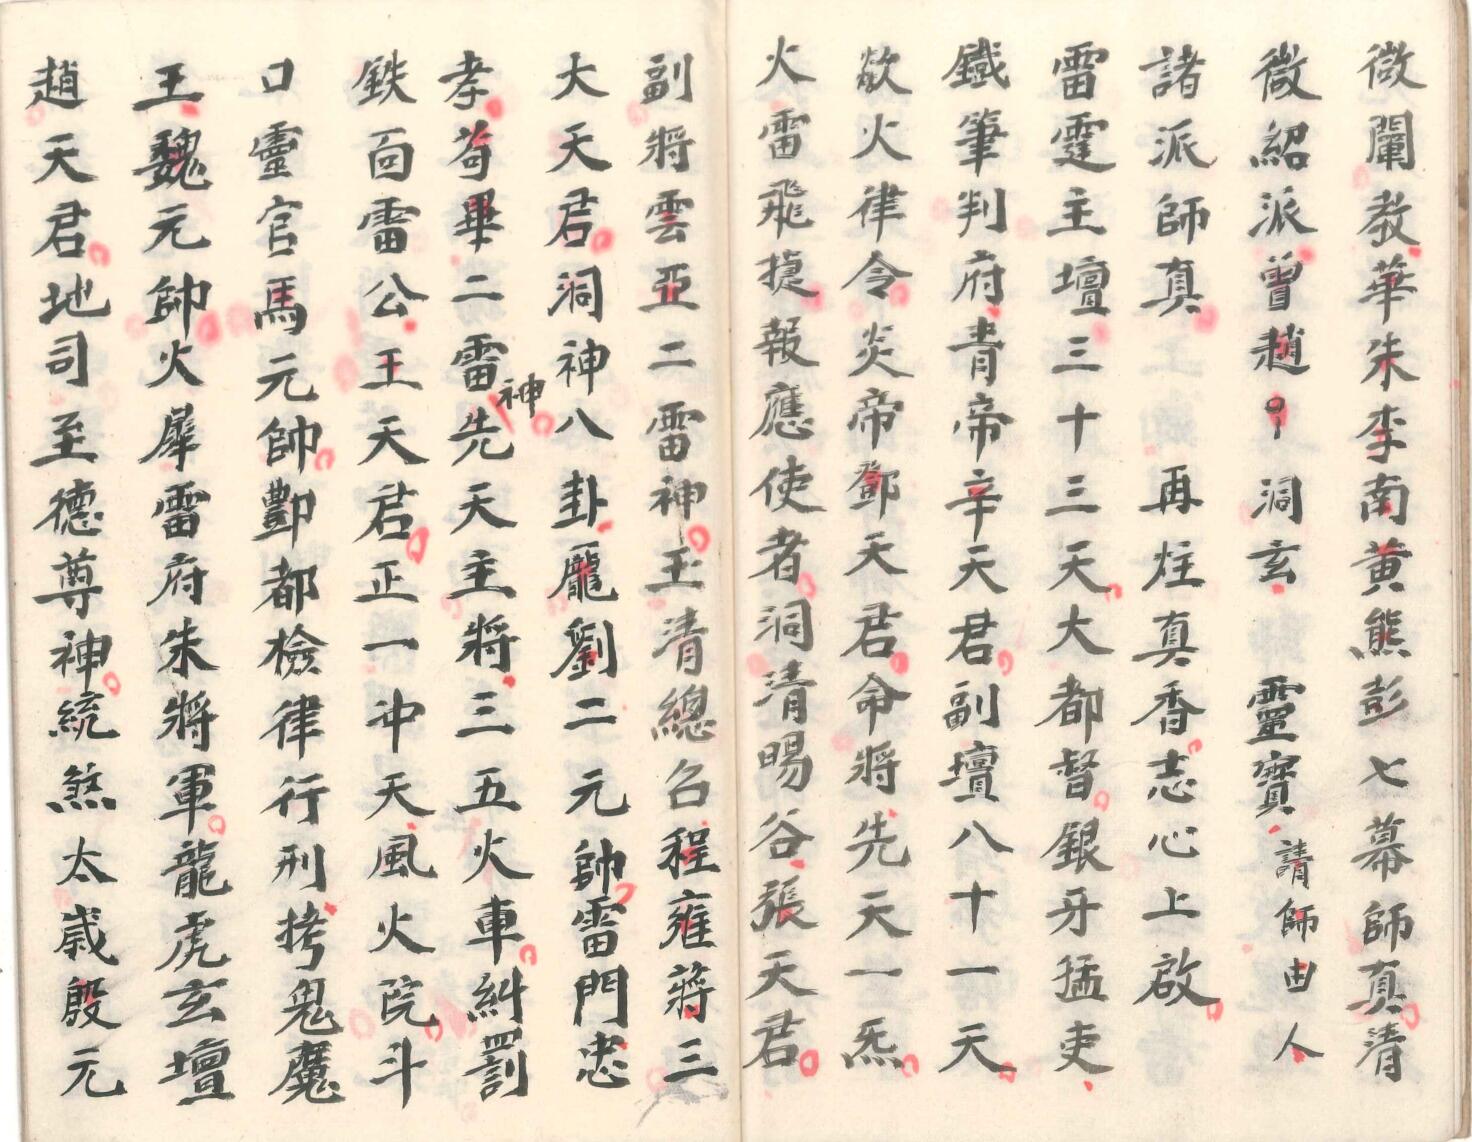 微闡教華朱李南黃熊彭七幕師真清
微紹派曾趙洞玄靈寶請師由人
諸派師真再炷真香志心上啟
雷霆主壇三十三天大都督銀牙猛吏
鐵筆判府青帝辛天君副壇八十一天
欻火律令炎帝鄧天君命將先天一炁
火雷飛捷報應使者洞清暘谷張天君
副將雲亞二雷神玉清總召程雍蔣三
大天君洞神八卦龐劉二元帥雷門忠
孝苟畢二雷神先天主將三五火車糾罰
鉄面雷公王天君正一冲天風火院斗
口靈官馬元帥酆都檢律行刑拷鬼魔
王魏元帥火犀雷府朱將軍龍虎玄壇
趙天君地司至德尊神統煞太歲殷元